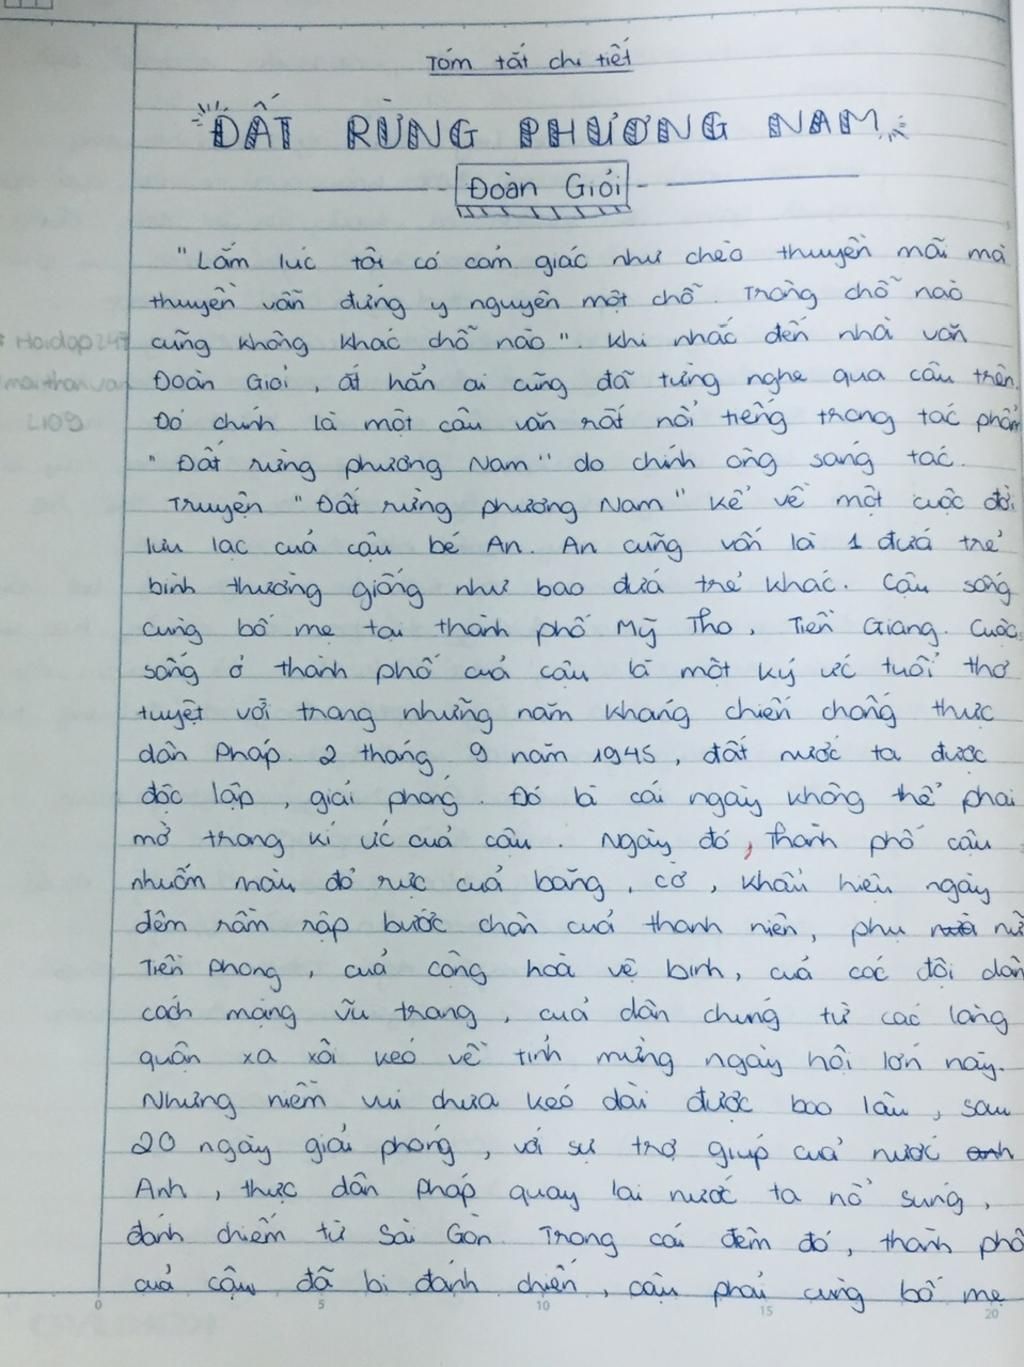 Tóm tắt chi tiết
ĐẤT RỪNG PHƯƠNG NAM
Đoàn Giỏi
"Lắm lúc tôi có cảm giác như chèo thuyền mãi mà
thuyền vẫn đứng y nguyên một chỗ. Trông chỗ nào
cũng không khác chỗ nào". Khi nhắc đến nhà văn
Đoàn Giỏi, ắt hẳn ai cũng đã từng nghe qua câu trên.
Đó chính là một câu văn rất nổi tiếng trong tác phẩm
"Đất rừng phương Nam" do chính ông sáng tác.
Truyện "Đất rừng phương Nam" kể về một cuộc đời
lưu lạc của cậu bé An. An cũng vốn là 1 đứa trẻ
bình thường giống như bao đứa trẻ khác. Cậu sống
cùng bố mẹ tại thành phố Mỹ Tho, Tiền Giang. Cuộc
sống ở thành phố của cậu là một ký ức tuổi thơ
tuyệt vời trong những năm kháng chiến chống thực
dân Pháp. 2 tháng 9 năm 1945, đất nước ta được
độc lập, giải phóng. Đó là cái ngày không thể phai
mờ trong kí ức của cậu. Ngày đó, thành phố cậu
nhuốm màu đỏ rực của băng, cờ, khẩu hiệu ngày
đêm rầm rập bước chân của thanh niên, phụ nữ
Tiền phong, của cộng hoà vệ binh, của các đội dân
cách mạng vũ trang, của dân chúng từ các làng
quận xa xôi kéo về tỉnh mừng ngày hội lớn này.
Nhưng niềm vui chưa kéo dài được bao lâu, sau
20 ngày giải phóng, với sự trợ giúp của nước
Anh, thực dân Pháp quay lại nước ta nổ súng,
đánh chiếm từ Sài Gòn. Trong cái đêm đó, thành phố
của cậu đã bị đánh chiến, cậu phải cùng bố mẹ
0 5 10 15 20